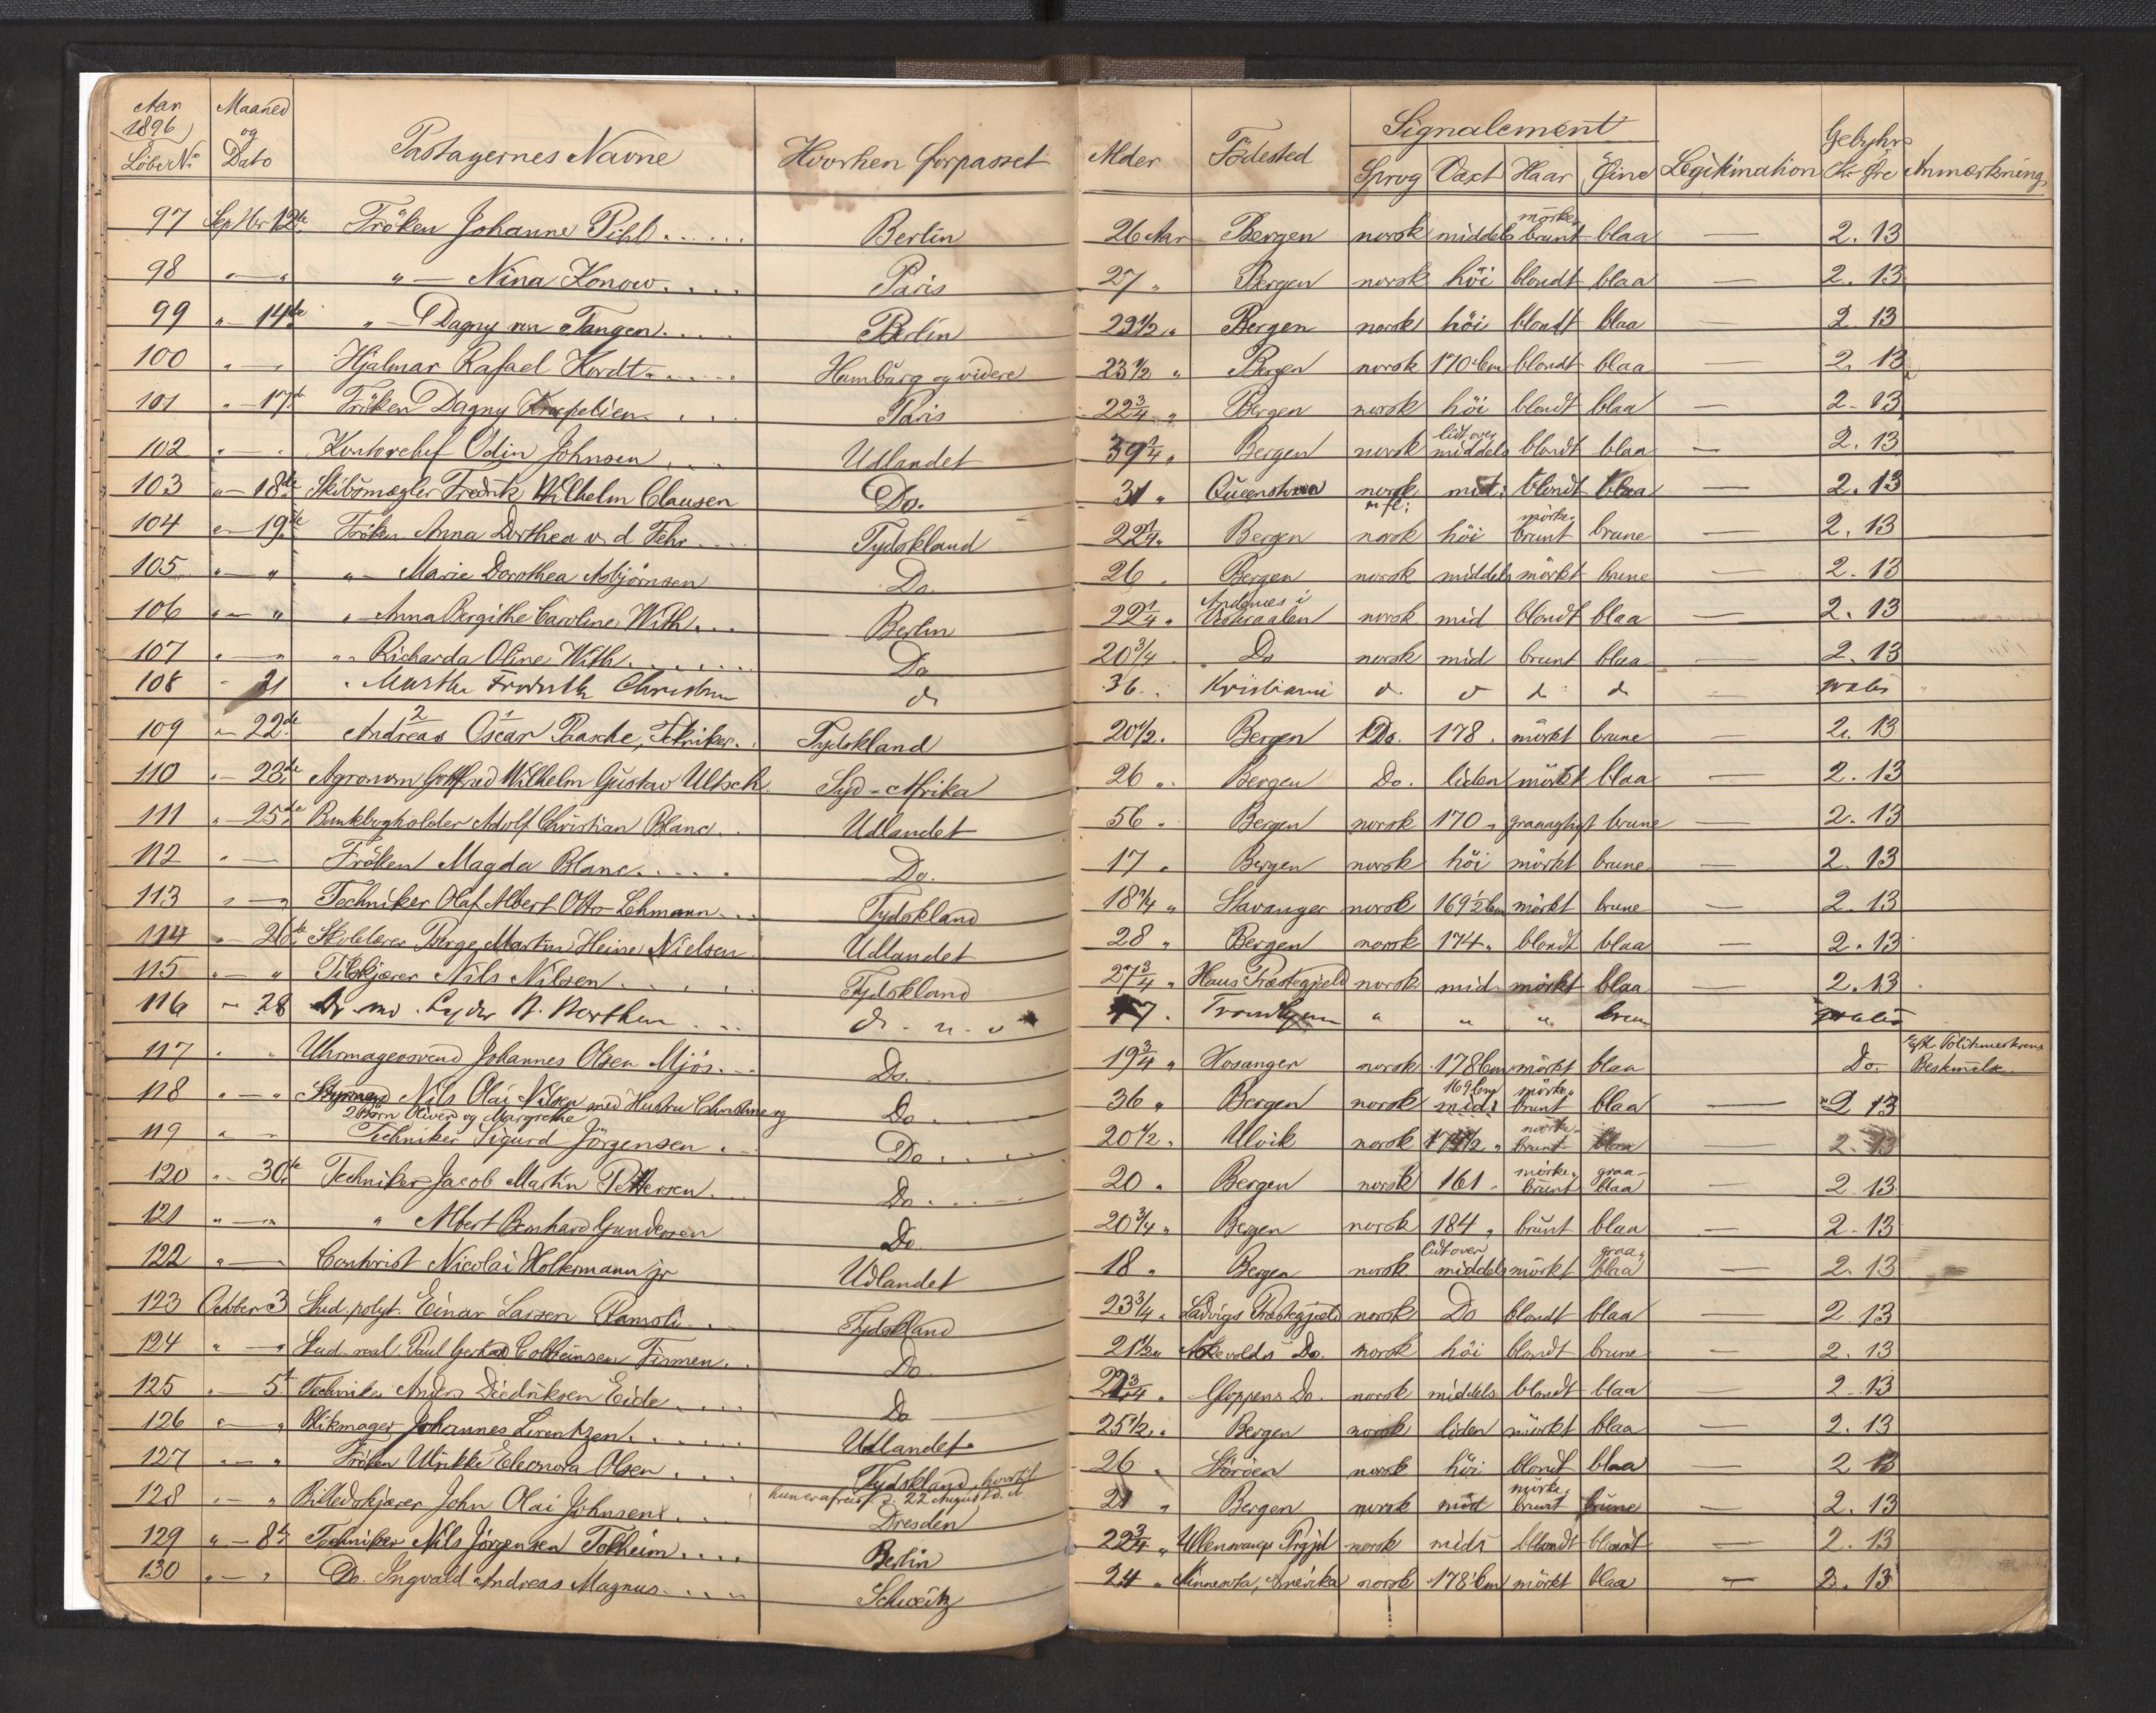 Aar 1896 Maaned og Dato Passagernes Navne Hvorhen forpasset Alder Födested Signalement Legitimation Gebyhr Anmærkning
Löbe No Sprog Vext Haar Öine Kr Öre
97 Septbr 12te Fröken Johanne Pihl Berlin 26 Aar Bergen norsk middels mörke-brunt blaa — 2. 13
98 " — " " — Nina Konow Paris 27 " Bergen norsk höi blondt blaa — 2. 13
99 " — 14de " — Dagny von Tangen Berlin 29 1/2 " Bergen norsk höi blondt blaa — 2. 13
100 " — Hjalmar Rafael Hordt Hamburg og videre 23 1/2 " Bergen norsk 170 Cm blondt blaa — 2. 13
101 " — 17de Fröken Dagny Paris 22 3/4 " Bergen norsk höi blondt blaa — 2. 13
102 " — " Kontorchef Odin Johnsen Udlandet 39 1/4 " Bergen norsk lidt over middels blondt blaa — 2. 13
103 " — 18de Skibsmægler Fredrik Wilhelm Clausen Do. 31 " Queenstown norsk mid: blondt blaa — 2. 13
104 " — 19de Fröken Anna Dorthea v. d. Fehr Tydskland 22 1/4 " Bergen norsk höi mörke-brunt brune — 2. 13
105 " — " " — Marie Dorothea Asbjörnsen Do. 26 " Bergen norsk middels mörkt brune — 2. 13
106 " — " " — Anna Bergithe Caroline With Berlin 22 1/4 " Andenæs i Vesteraalen norsk mid blondt blaa — 2. 13
107 " — " " — Richarda Oline With Do 20 3/4 Do norsk mid brunt blaa — 2. 13
108 " 21 " Martha Christensen d 36 " Kristiania d. d d. d — gratis
109 " — 22de Andreas 2 Oscar 1 Paasche, Tekniker Tydskland 20 1/2 " Bergen Do. 178 " mörkt brune — 2. 13
110 " — 23de Agronom Gottfred Wilhelm Gustav Ultsch Syd-Afrika 26 " Bergen Do. liden mörkt blaa — 2. 13
111 " — 25de Bankbogholder Adolf Christian Blanc Udlandet 56 " Bergen norsk 170 " graaagtigt brune — 2. 13
112 " — Fröken Magda Blanc Do. 17 " Bergen norsk höi mörkt brune — 2. 13
113 " — " Techniker Olaf Albert Otto Lehmann Tydskland 18 1/4 " Stavanger norsk 169 1/2 Cm mörkt brune — 2. 13
114 " — 26de Skolelærer Berge Martin Heine Nielsen Udlandet 28 " Bergen norsk 174 " blondt blaa — 2. 13
115 " — " Tilskjærer Nils Nilsen Tydskland 27 3/4 " Haus Præstegjeld norsk mid. mörkt blaa — 2. 13
116 " — 28 Dr. md. Lyder N. Borthen d. " " 47 " Trondhjem " " " brun gratis
117 " " Uhrmagersvend Johannes Olsen Mjös Do. 19 3/4 " Hosanger norsk 178 Cm mörkt blaa Do. Efter Politimesterens Bestemmelse
118 " — " Styrmand Nils Olai Nilsen med Hustru Christine og 2 Börn Oliver og Margrethe Do 36 " Bergen norsk 169 Cm mid: mörke-brunt blaa — 2 13
119 " — Techniker Sigurd Jörgensen Do 20 1/2 " Ulvik norsk 174 1/2 " mörke-brunt blaa — 2. 13
120 " — 30te Techniker Jacob Martin Pettersen Do 20 " Bergen norsk 161 " mörke-brunt graa-blaa — 2. 13
121 " — " " Albert Bernhard Gundersen Do 20 3/4 " Bergen norsk 184 " brunt blaa — 2. 13
122 " — Contorist Nicolai Holtermann jr Udlandet 18 " Bergen norsk lidt over middels mörkt graa-blaa — 2. 13
123 October 3 Stud. polyt. Einar Larsen Ramsli Tydskland 23 3/4 " Ladvigs Præstegjeld norsk Do blondt blaa — 2. 13
124 " — " Stud. real. Paul Gerhard Colbeinsen Firmen Do. 21 1/2 " Askevolds Do. norsk höi blondt brune — 2. 13
125 " — 5te Techniker Anders Diedriksen Eide Do 22 3/4 " Gloppens Do. norsk middels blondt blaa — 2. 13
126 " — " Blikmager Johannes Lorentzen Udlandet 25 1/2 " Bergen norsk liden mörkt blaa — 2. 13
127 " — " Fröken Ulrikke Eleonora Olsen Tydskland, hvortil hun er afreist d. 22 August d. A. 26 " norsk höi blondt blaa — 2 13
128 " — " Billedskjærer John Olai Johnsen Dresden 21 " Bergen norsk mid mörke-brunt brune — 2. 13
129 " — 8de Techniker Nils Jörgensen Tokheim Berlin 22 3/4 " Ullensvangs Prgjld norsk mid: blondt — 2. 13
130 " — " Do. Ingvald Andreas Magnus Schweitz 24 " Minnesota, Amerika norsk 178 Cm mörkt blaa — 2. 13